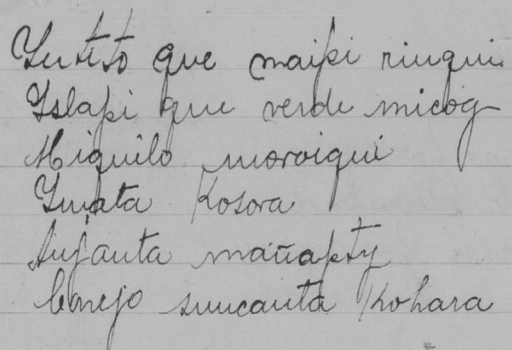 Yutito que maipi rinqui
Yslapi que verde micog
Miquilo moroiqui
Ymata Kosora
Aujanta mañapty
Conejo suucanta Kohara